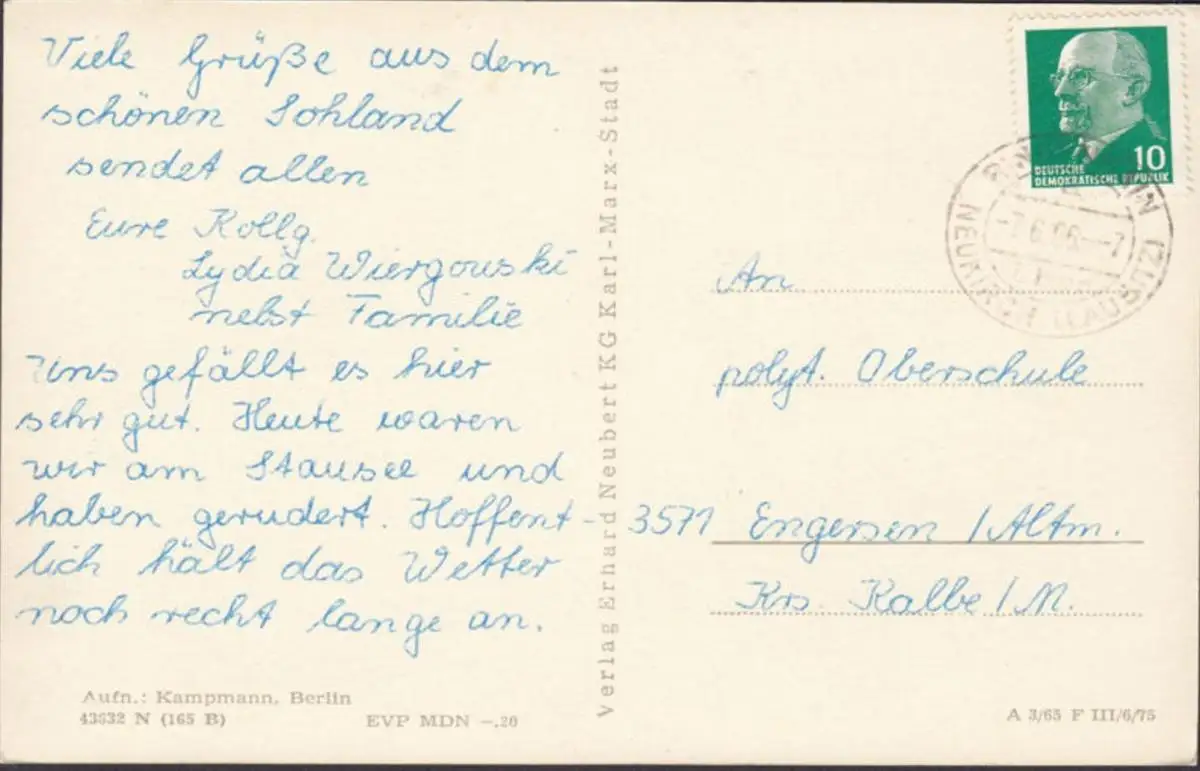 Viele Grüße aus dem
schönen Sohland
sendet allen
Eure Kollg.
Lydia Wiergowski
nebst Familie
Uns gefällt es hier
sehr gut. Heute waren
wir am Stausee und
haben gerudert. Hoffent-
lich hält das Wetter
noch recht lange an.
Aufn.: Kampmann, Berlin
43632 N (165 B)
EVP MDN -.20
Verlag Erhard Neubert KG Karl-Marx-Stadt
10
DEUTSCHE
DEMOKRATISCHE REPUBLIK
NEUKIRCH (LAUSITZ)
An
polyt. Oberschule
3571 Engersen / Altm.
Krs. Kalbe / M.
A 3/65 F III/6/75